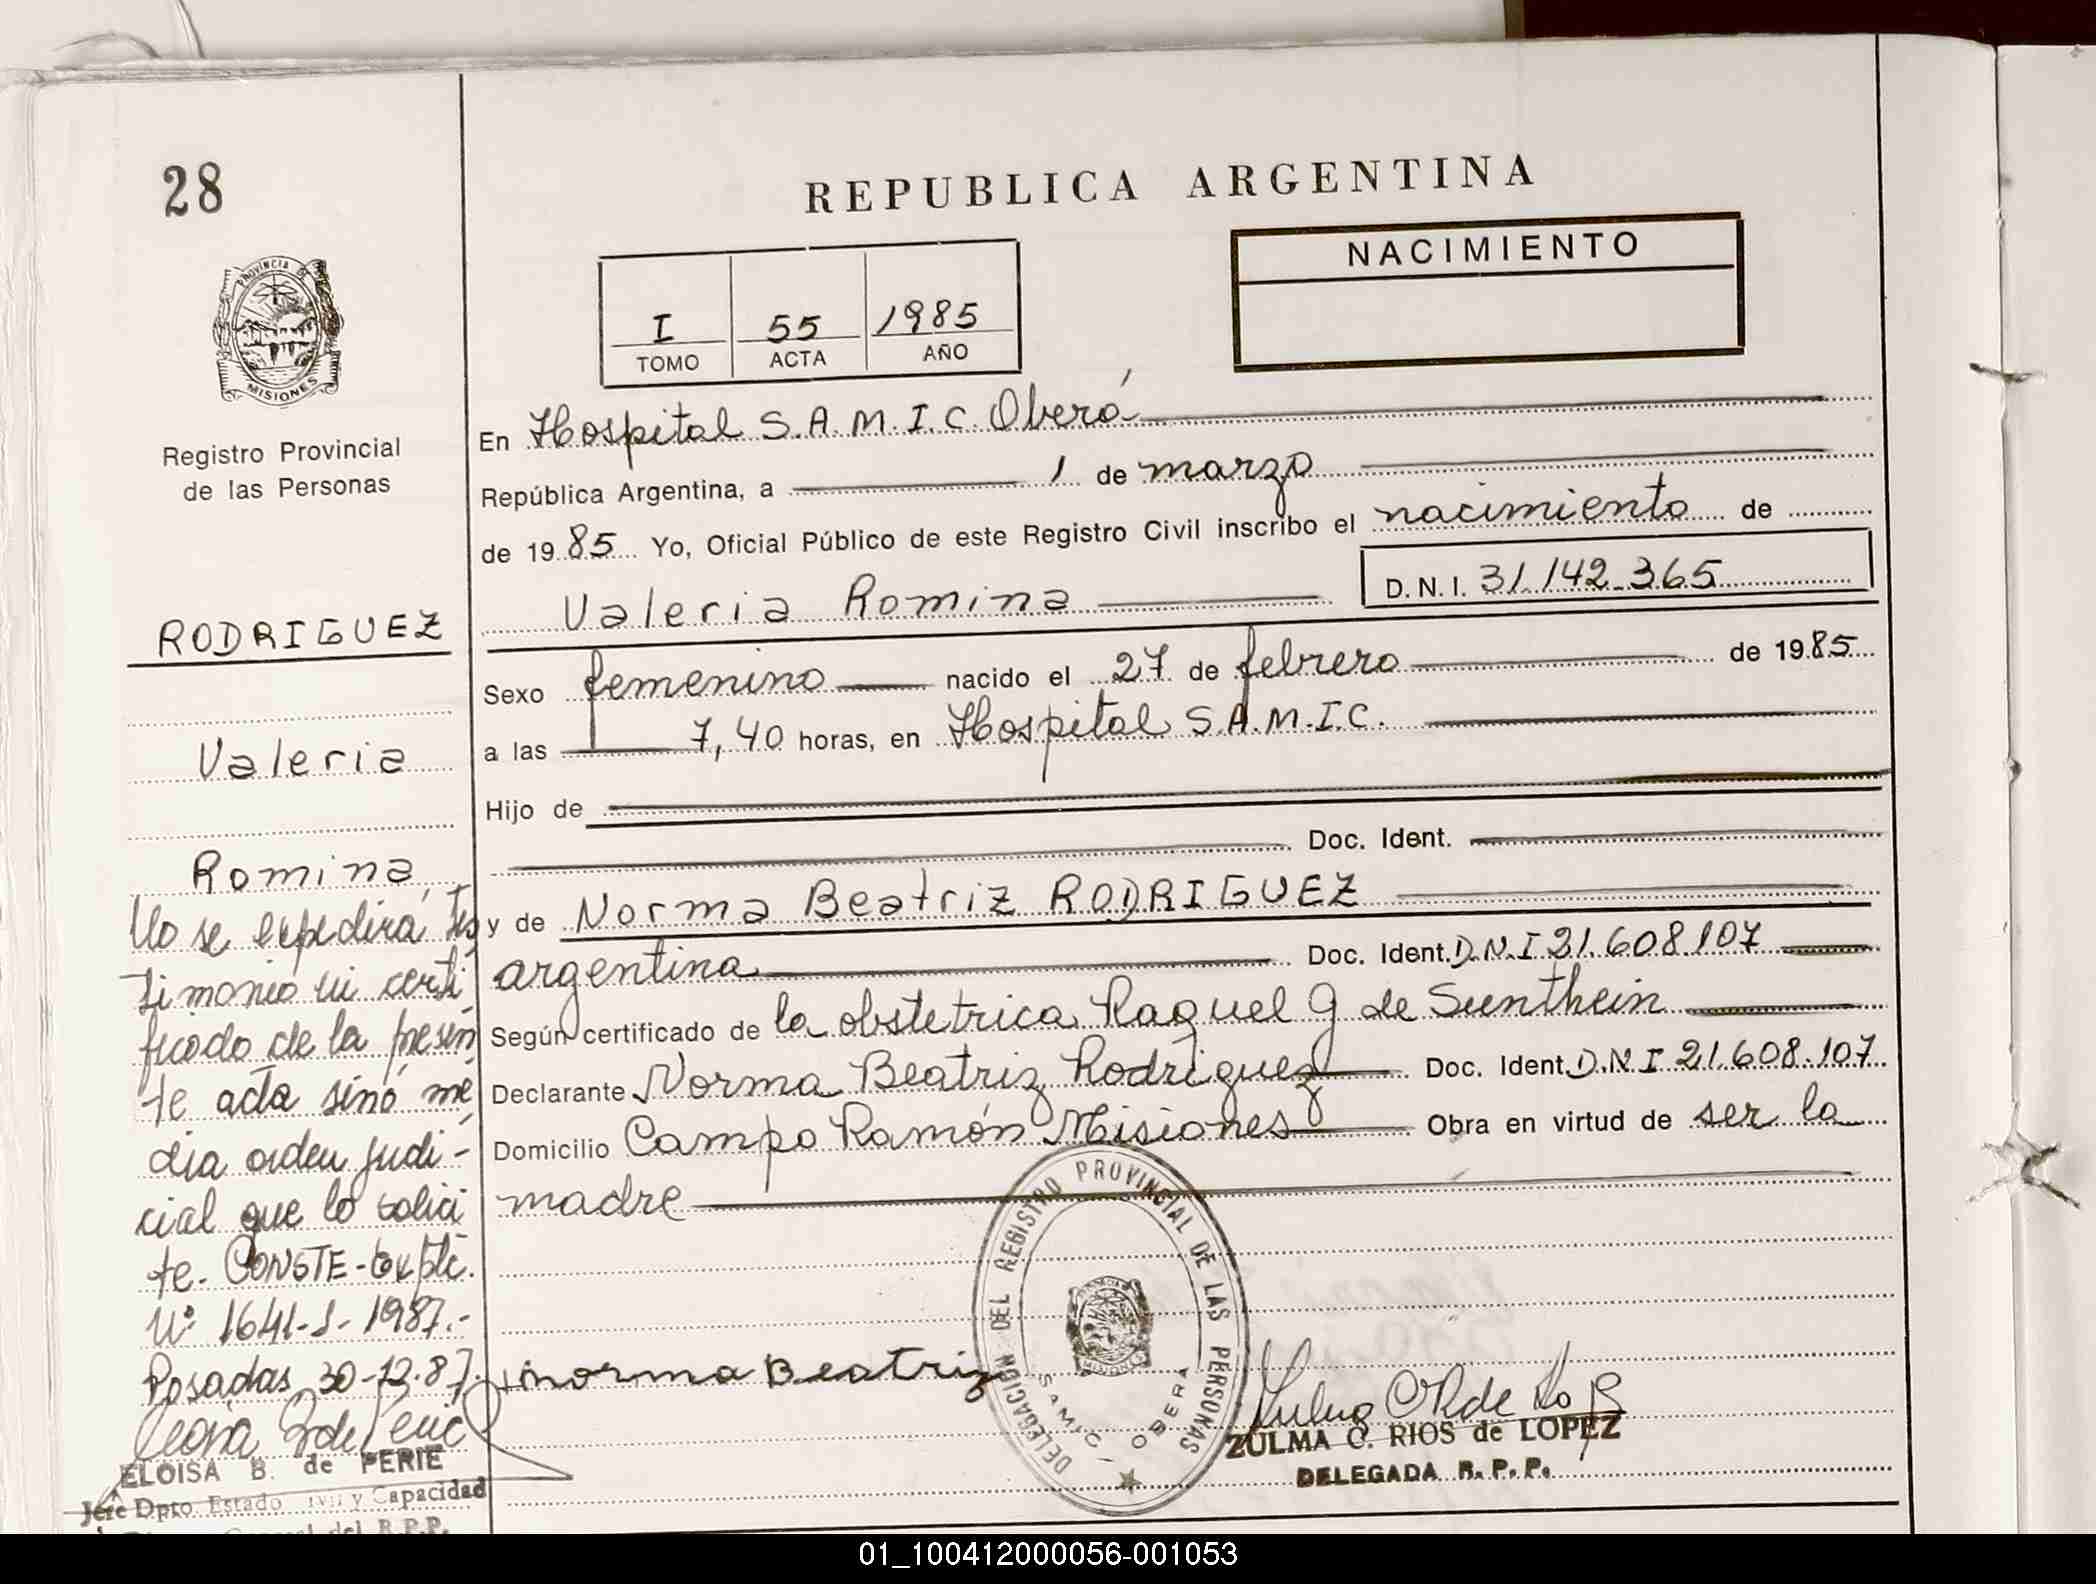 28
REPUBLICA ARGENTINA
NACIMIENTO
I 55 1985
TOMO ACTA AÑO
PROVINCIA DE MISIONES
Registro Provincial
de las Personas
RODRIGUEZ
Valeria
Romina
No se expedirá tes
timonio ni certi
ficado de la presen
te acta sinó me
dia orden judi-
cial que lo solici
te. CONSTE-Expte.
Nº 1641-S-1987.-
Posadas 30-12-87.
ELOISA B. de PERIE
Jefe Dpto. Estado Civil y Capacidad
General del R.P.P.
En Hospital S.A.M.I.C. Oberá
República Argentina, a 1 de marzo
de 1985 Yo, Oficial Público de este Registro Civil inscribo el nacimiento de
Valeria Romina D.N.I. 31.142.365
Sexo femenino nacido el 27 de febrero de 1985
a las 7,40 horas, en Hospital S.A.M.I.C.
Hijo de
Doc. Ident.
y de Norma Beatriz RODRIGUEZ
argentina Doc. Ident. D.N.I 21.608.107
Según certificado de la obstetrica Raquel G de Sunthein
Declarante Norma Beatriz Rodriguez Doc. Ident. D.N.I 21.608.107
Domicilio Campo Ramón Misiones Obra en virtud de ser la
madre
DELEGACION DEL REGISTRO PROVINCIAL DE LAS PERSONAS
SAMIC - OBERA
norma Beatriz
ZULMA C. RIOS de LOPEZ
DELEGADA R.P.P.
01_100412000056-001053